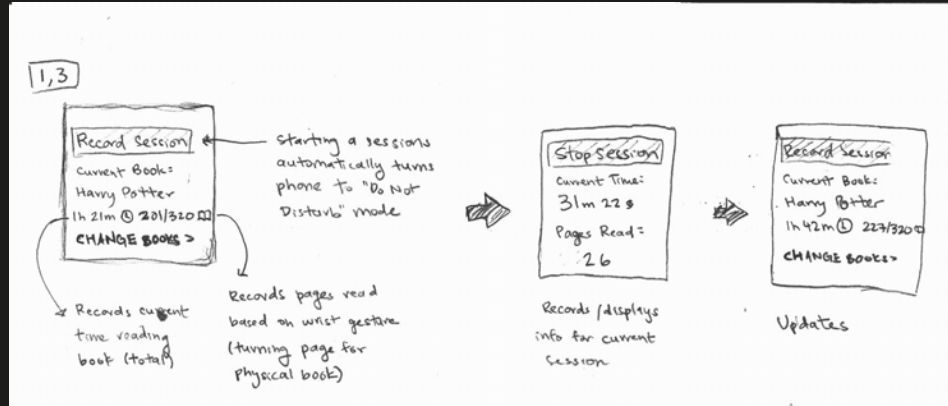 1,3
Record Session
Current Book:
Harry Potter
1h 21m 201/320
CHANGE BOOKS >
Starting a sessions
automatically turns
phone to "Do Not
Disturb" mode
Records current
time reading
book (total)
Records pages read
based on wrist gesture
(turning page for
physical book)
Stop Session
Current Time:
31m 22s
Pages Read:
26
Records/displays
info for current
session
Record Session
Current Book:
Harry Potter
1h 42m 227/320
CHANGE BOOKS>
Updates